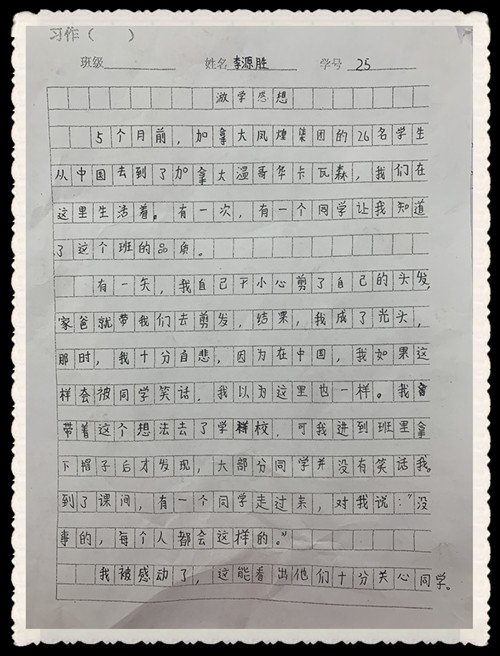 习作（ ）
班级 姓名 李源胜 学号 25
游学感想
5个月前，加拿大凤煌集团的26名学生
从中国去到了加拿大温哥华卡瓦森，我们在
这里生活着。有一次，有一个同学让我知道
了这个班的品质。
有一天，我自己不小心剪了自己的头发，
家爸就带我们去剪发，结果，我成了光头，
那时，我十分自悲，因为在中国，我如果这
样会被同学笑话，我以为这里也一样。我
带着这个想法去了学校，可我进到班里拿
下帽子后才发现，大部分同学并没有笑话我。
到了课间，有一个同学走过来，对我说："没
事的，每个人都会这样的。"
我被感动了，这能看出他们十分关心同学。